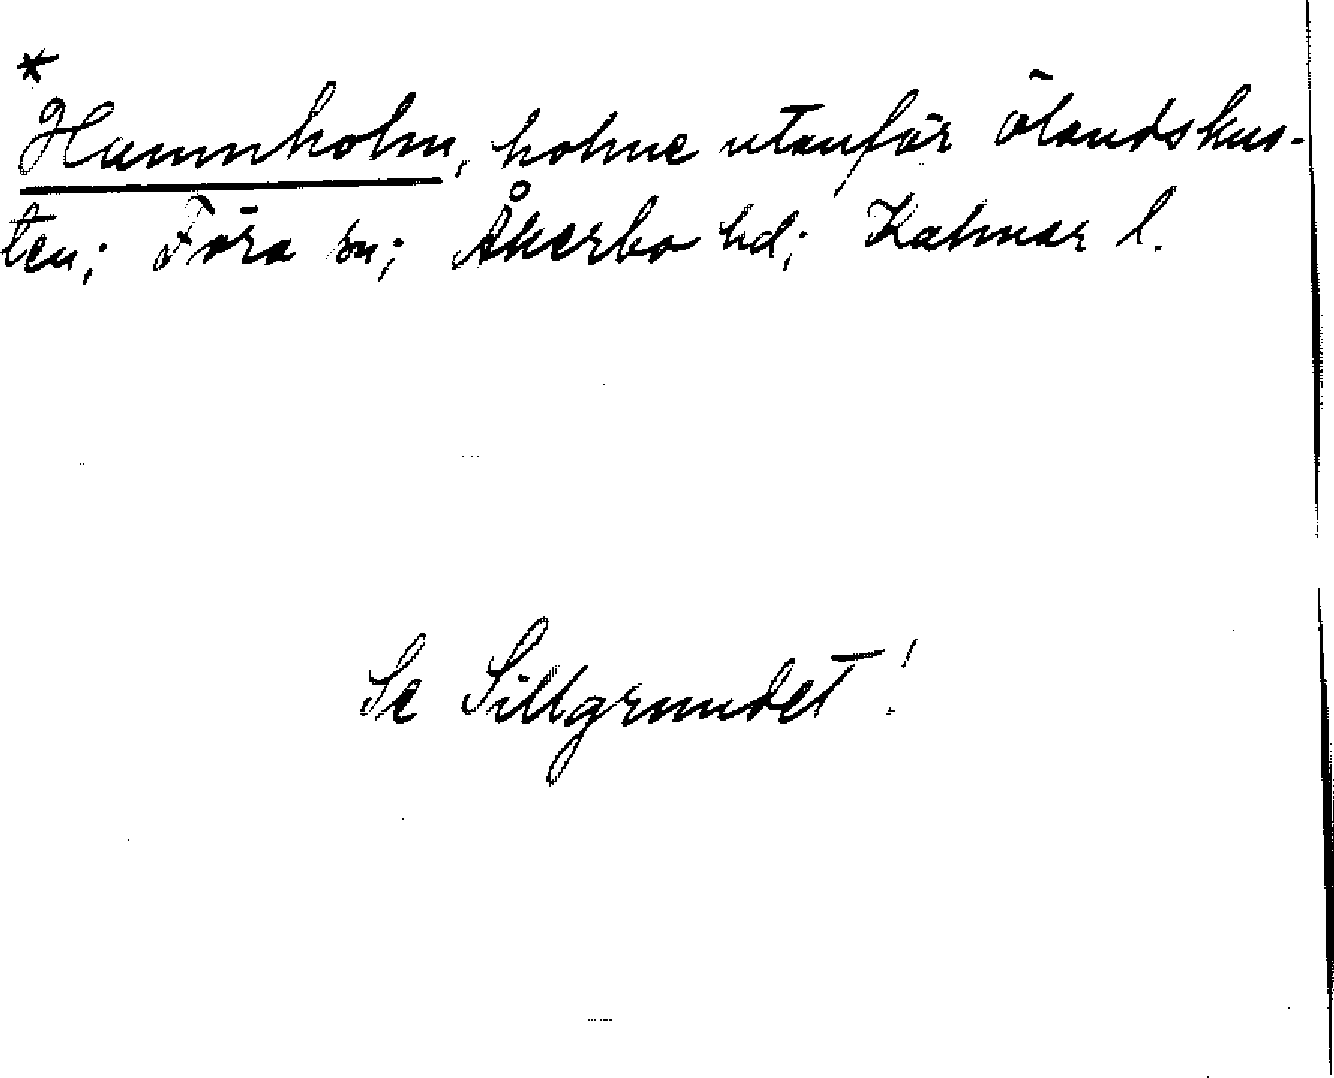 *
Hamnholm, holme utanför ölandskus-
ten; Föra sn; Åkerbo hd; Kalmar l.
Se Sillgrundet!